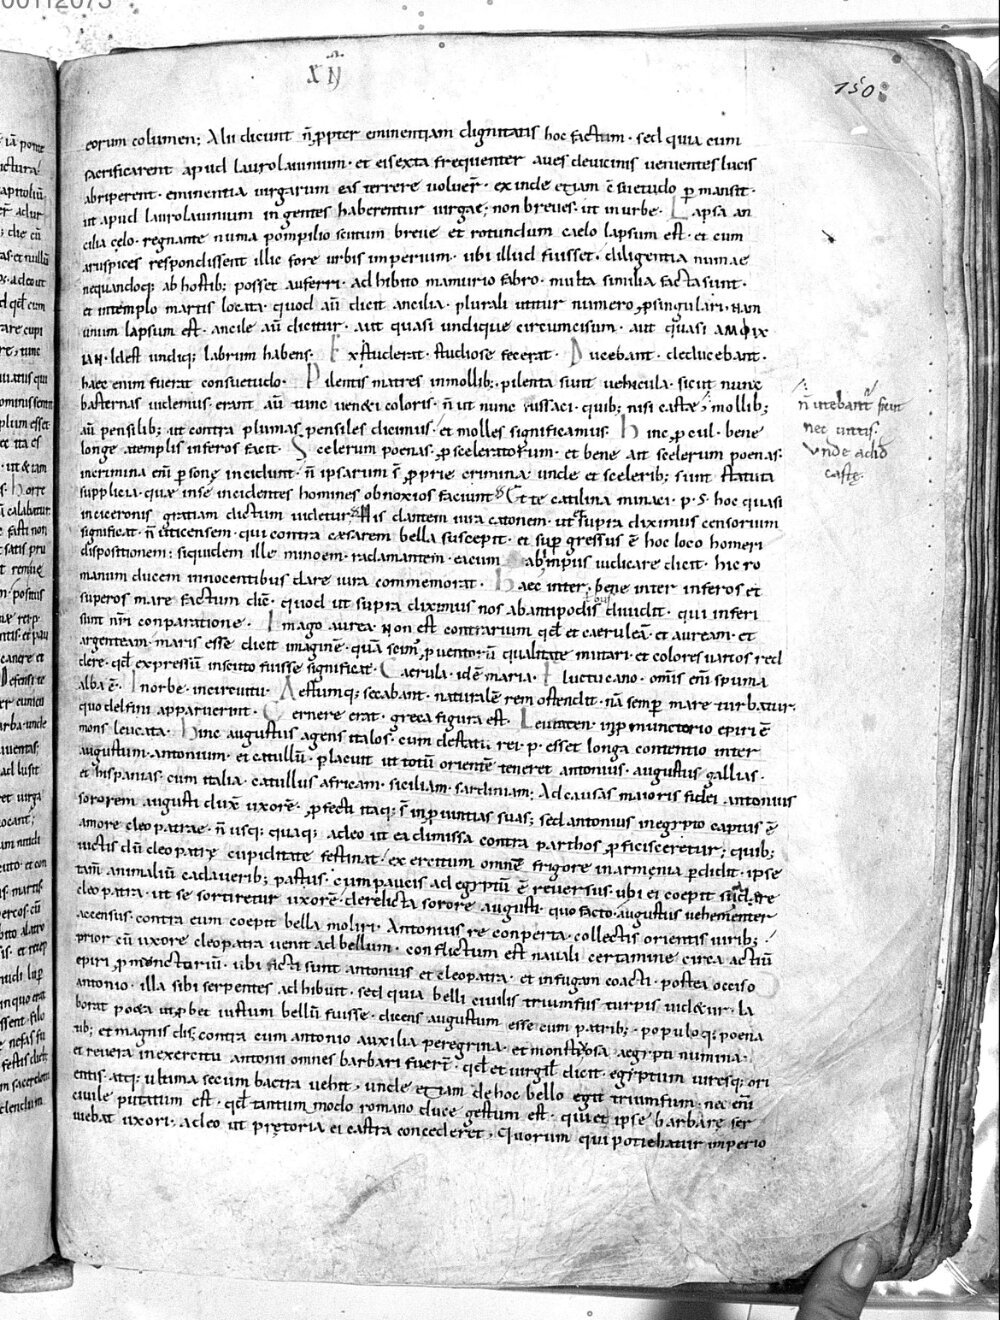 XII
150
eorum columen; Alii dicunt ñ ppter eminentiam dignitatis hoc factum · sed quia cum
sacrificarent apud laurolauinium · et eis exta frequenter aues deuicinis uenientes lucis
abriperent · eminentia uirgarum eas terrere uoluer̃ · exinde etiam ẽ suetudo pmansit ·
ut apud laurolauinium ingentes haberentur uirgae; non breues · ut inurbe · Lapsa an
cilia cęlo · regnante numa pompilio scutum breue et rotundum caelo lapsum est · et cum
aruspices respondissent illic fore urbis imperium · ubi illud fuisset · diligentia numae
nequandoq; ab hostib; posset auferri · adhibito mamurio fabro · multa similia facta sunt ·
et intemplo martis locata quod aũ dicit ancilia · plurali utitur numero, psingulari · nam
unum lapsum est · ancile aũ dicitur · aut quasi undique circumcisum · aut quasi ΑΜΦΙΧ
ΙΛΗ · Idest undiq; labrum habens · Extuderat · studiose fecerat · Ducebant · deducebant ·
haec enim fuerat consuetudo · Pilentis matres inmollib; · pilenta sunt uehicula · sicut nunc
basternas uidemus · erant aũ tunc ueneti coloris · ñ ut nunc russaci · quib; nisi castę; mollib;
aũ pensilib; · ut contra plumas pensiles dicimus · et molles significamus · Hinc pcul · bene
longe atemplis inferos facit · Scelerum poenas · psceleratorum · et bene ait scelerum poenas ·
incrimina enĩ psonę incidunt · ñ ipsarum s̃ pprie crimina · unde et sceleribus sunt statuta
supplicia · quae inse incidentes homines obnoxios faciunt · Et te catilina minaci · p · s · hoc quasi
inciceronis gratiam dictum uidetur · His dantem iura catonem · ut supra diximus censorium
significat · ñ uticensem · qui contra caesarem bella suscepit · et supgressus ẽ hoc loco homeri
dispositionem; siquidem ille minoem · radamantem · eacum · ab impiis iudicare dicit · hic ro
manum ducem innocentibus dare iura commemorat · Haec inter · bene inter inferos et
superos mare factum dic̃ · quod ut supra diximus nos abantipodis diuidit · qui inferi
sunt nr̃i conparatione · Imago aurea · non est contrarium qd̃ et caeruleã et auream · et
argenteam · maris esse dicit imaginẽ · quã scim̃ · puentorũ qualitate mutari · et colores uarios red
dere · qd̃ expressiũ inscuto fuisse significat · Caerula · idẽ maria · Fluctu cano · om̃s enĩ spuma
alba ẽ · Inorbe · incircuitu · Aestumq; secabant · naturalẽ rem ostendit · nã semp mare turbatur ·
quo delfini apparuerint · Cernere erat · greca figura est · Leucaten · inpmunctorio epiri ẽ
mons leucata · Hinc augustus agens italos · cum destatu rei · p · esset longa contentio inter
augustum · antonium · et catullũ · placuit ut totũ orientẽ teneret antonius · augustus gallias ·
et hispanias · cum italia · catullus africam · siciliam · sardiniam; Ad causas maioris fidei antonius
sororem augusti duxẽ uxorẽ · pfecti itaq; s̃ inpuintias suas; sed antonius inegypto captus ẽ
amore cleopatrae · ñ usq; quaq; adeo ut ea dimissa contra parthos pficisceretur; quib;
uictis dũ cleopatrę cupiditate festinat · exercitum omnẽ frigore inarmenia pdidit · ipse
tam̃ animaliũ cadauerib; pastus · cum paucis ad egyptũ ẽ reuersus · ubi ei coepit suadere
cleopatra · ut se sortiretur uxorẽ · derelicta sorore augusti · quo facto · augustus uehementer
accensus · contra eum coepit bella moliri · Antonius re conperta · collectis orientis uirib;
prior cũ uxore cleopatra uenit ad bellum · conflictum est nauali certamine circa actiũ
epiri pmonctoriũ · ubi uicti sunt antonius et cleopatra · et infugam coacti · postea occiso
antonio · illa sibi serpentes adhibuit · sed quia belli ciuilis triumfus turpis uidetur · la
borat poeta ut pbet iustum bellũ fuisse · dicens augustum esse cum patrib; · populoq; poena
tib; et magnis dis; contra cum antonio auxilia peregrina · et monstruosa aegypti numina ·
et reuera inexercitu antonii omnes barbari fuer̃t · qd̃ et uirgil̃ dicit · egyptum uiresq; ori
entis · atq; ultima secum bactra uehit · unde etiam dehoc bello egit triumfum · nec enĩ
ciuile putatum est · qd̃ tantum modo romano duce gestum est · qui et ipse barbarę ser
uiebat uxori · adeo ut pretoria ei castra concederet · Quorum qui potiebatur imperio
ñ utebant̃ sicut
nec uittis ·
Vnde ad id
castę ·